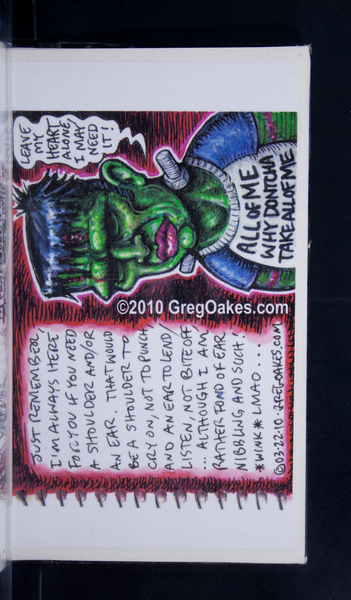 LEAVE
MY
HEART
ALONE,
I MAY
NEED
IT!
ALL OF ME
WHY DONTCHA
TAKE ALL OF ME
©2010 GregOakes.com
JUST REMEMBER
I'M ALWAYS HERE
FOR YOU IF YOU NEED
A SHOULDER AND/OR
AN EAR. THAT WOULD
BE A SHOULDER TO
CRY ON, NOT TO PUNCH,
AND AN EAR TO LEND/
LISTEN, NOT BITE OFF
... ALTHOUGH I AM
RATHER FOND OF EAR
NIBBLING AND SUCH,
*WINK* LMAO....
©03-22-10-GREGOAKES.COM